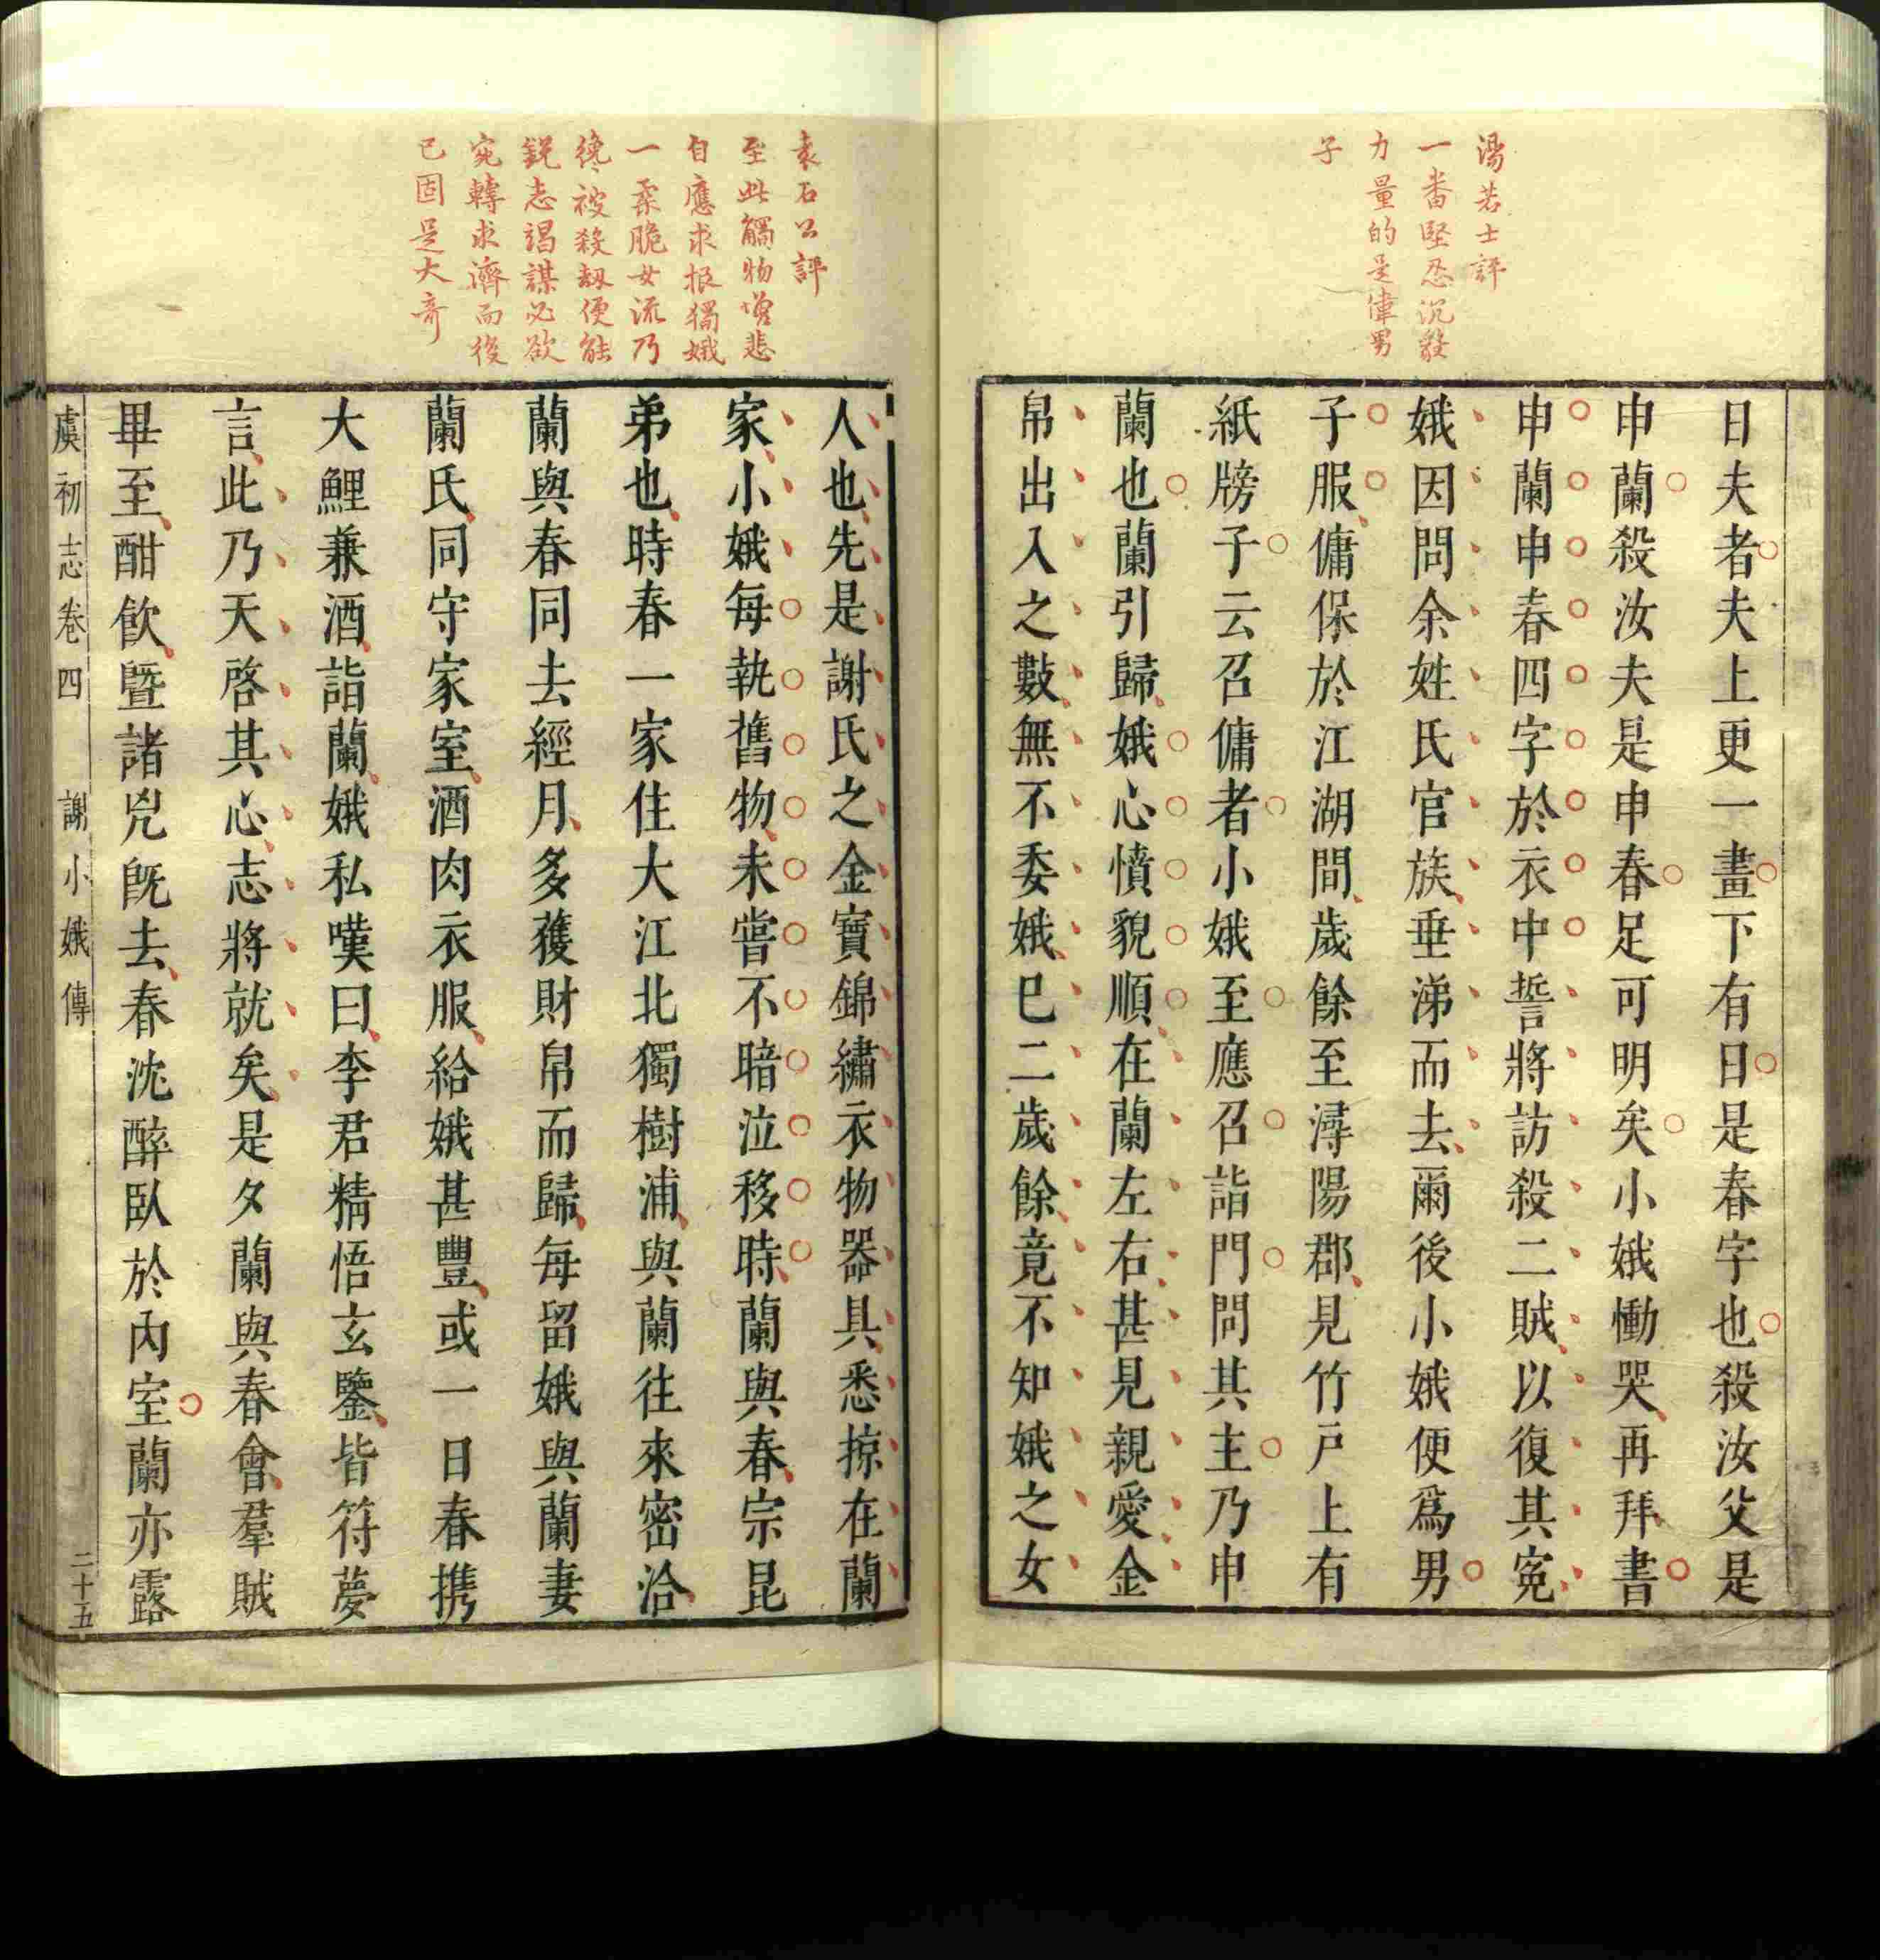 湯若士評
一番堅忍沉毅
力量的是偉男
子
日夫者夫上更一畫下有日是春字也殺汝父是
申蘭殺汝夫是申春足可明矣小娥慟哭再拜書
申蘭申春四字於衣中誓將訪殺二賊以復其冤
娥因問余姓氏官族垂涕而去爾後小娥便為男
子服傭保於江湖間歲餘至潯陽郡見竹戸上有
紙牓子云召傭者小娥至應召詣門問其主乃申
蘭也蘭引歸娥心憤貌順在蘭左右甚見親愛金
帛出入之數無不委娥巳二歲餘竟不知娥之女
袁石公評
至此觸物增悲
自應求報獨娥
一柔脆女流乃
纔被殺劫便能
銳志謁謀必欲
宛轉求濟而後
已固是大奇
人也先是謝氏之金寶錦繡衣物器具悉掠在蘭
家小娥每執舊物未嘗不暗泣移時蘭與春宗昆
弟也時春一家住大江北獨樹浦與蘭往來密洽
蘭與春同去經月多獲財帛而歸每留娥與蘭妻
蘭氏同守家室酒肉衣服給娥甚豐或一日春携
大鯉兼酒詣蘭娥私嘆曰李君精悟玄鑒皆符夢
言此乃天啓其心志將就矣是夕蘭與春會羣賊
畢至酣飲暨諸兇旣去春沈醉臥於內室蘭亦露
虞初志卷四 謝小娥傳 二十五